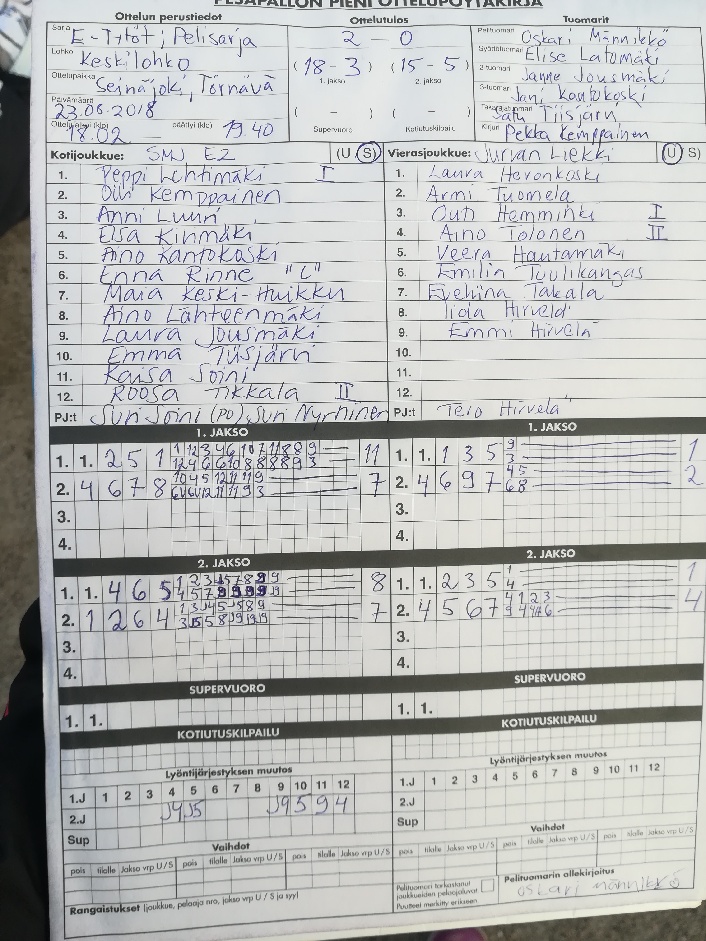 PESÄPALLON PIENI OTTELUPÖYTÄKIRJA
Ottelun perustiedot
Sarja E-Tytöt; Pelisarja
Lohko Keskilohko
Ottelupaikka Seinäjoki, Törnävä
Päivämäärä 23.06-2018
Ottelu alkoi (klo) 18.02 päättyi (klo) 19.40
Ottelutulos
2 - 0
(18 - 3) (15 - 5)
1. jakso 2. jakso
( - ) ( - )
Supervuoro Kotiutuskilpailu
Tuomarit
Pelituomari Oskari Männikkö
Syöttötuomari Elise Latomäki
2-tuomari Janne Jousmäki
3-tuomari Jani Kantokoski
Takarajatuomari Satu Tiisjärvi
Kirjuri Pekka Kemppainen
Kotijoukkue: SMJ E2 (U S)
1. Peppi Lehtimäki I
2. Oili Kemppainen
3. Anni Luuri
4. Elsa Kinmäki
5. Aino Kantokoski
6. Enna Rinne "C"
7. Maia Keski-Huikku
8. Aino Lähteenmäki
9. Laura Jousmäki
10. Emma Tiisjärvi
11. Kaisa Soini
12. Roosa Tikkala II
PJ:t Suri Soini (PO), Suri Nyrhinen
Vierasjoukkue: Jurvan Liekki (U S)
1. Laura Heronkoski
2. Armi Tuomela
3. Outi Hemminki I
4. Aino Tolonen II
5. Veera Hautamäki
6. Emilia Tuulikangas
7. Eveliina Takala
8. Iida Hirvelä
9. Emmi Hirvelä
10.
11.
12.
PJ:t Tero Hirvelä
1. JAKSO
1. 1. 2 5 1 11
2. 4 6 7 8 7
3.
4.
1. JAKSO
1. 1. 1 3 5 9 3 1
2. 4 6 9 7 45 68 2
3.
4.
2. JAKSO
1. 1. 4 6 5 8
2. 1 2 6 4 7
3.
4.
2. JAKSO
1. 1. 2 3 5 1 4 1
2. 4 5 6 7 4
3.
4.
SUPERVUORO
1. 1.
SUPERVUORO
1. 1.
KOTIUTUSKILPAILU
KOTIUTUSKILPAILU
Lyöntijärjestyksen muutos
1.J 1 2 3 4 5 6 7 8 9 10 11 12
2.J
Sup
Lyöntijärjestyksen muutos
1.J 1 2 3 4 5 6 7 8 9 10 11 12
2.J
Sup
Vaihdot
pois tilalle Jakso vrp U/S pois tilalle Jakso vrp U/S pois tilalle Jakso vrp U/S
Vaihdot
pois tilalle Jakso vrp U/S pois tilalle Jakso vrp U/S pois tilalle Jakso vrp U/S
Rangaistukset (joukkue, pelaaja nro, jakso vrp U / S ja syy)
Pelituomari tarkastanut joukkueiden pelaajaluvat
Puutteet merkitty erikseen
Pelituomarin allekirjoitus
Oskari Männikkö